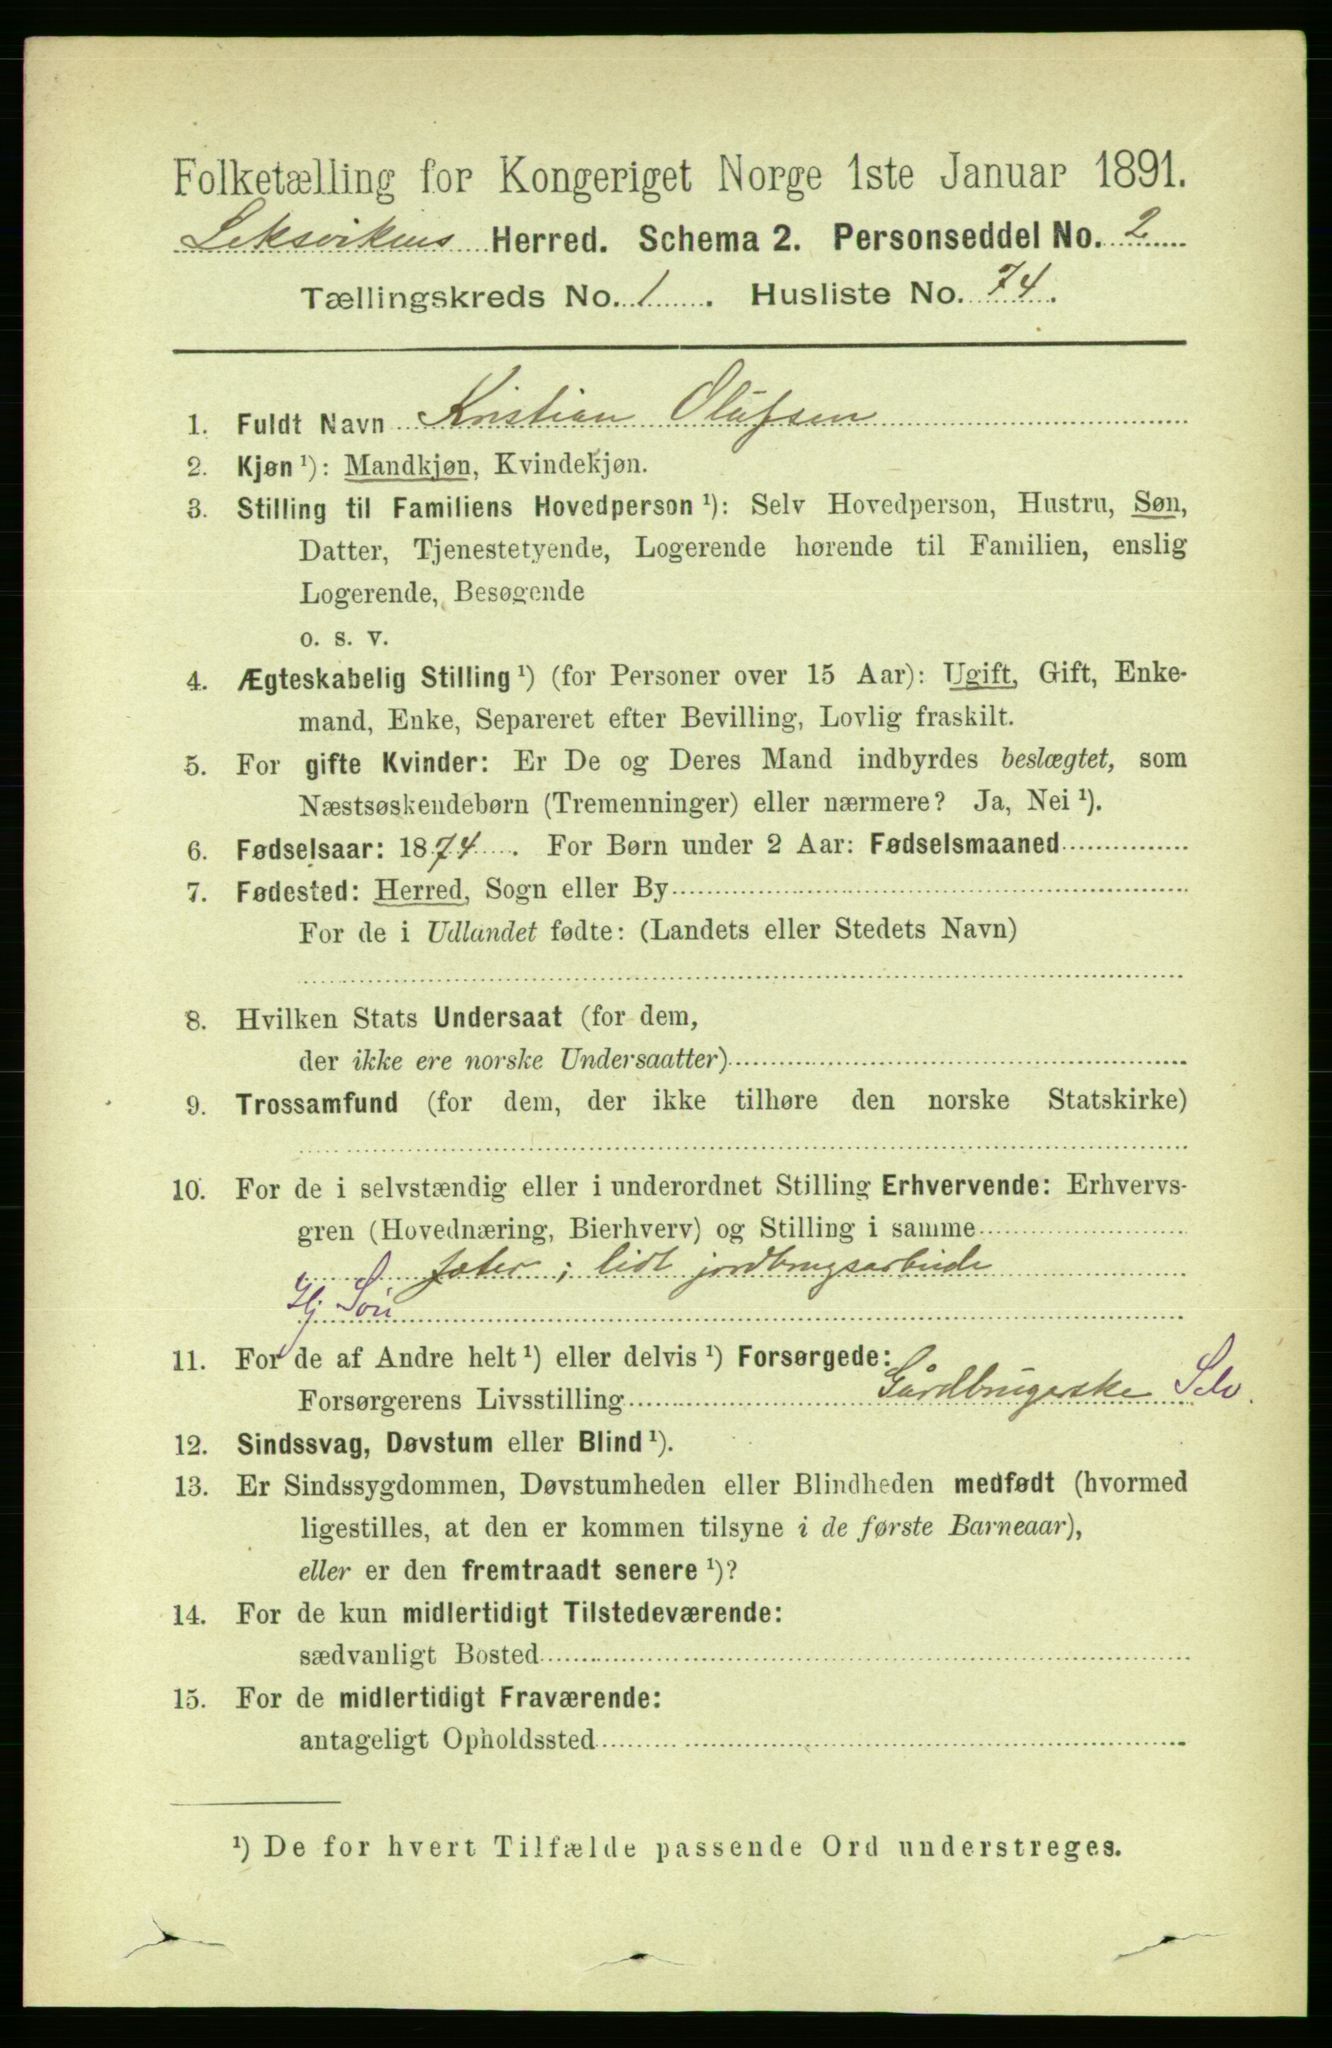 Folketælling for Kongeriget Norge 1ste Januar 1891.
Leksvikens Herred. Schema 2. Personseddel No. 2
Tællingskreds No. 1. Husliste No. 74.
1. Fuldt Navn Kristian Olufsen
2. Kjøn ¹): Mandkjøn, Kvindekjøn.
3. Stilling til Familiens Hovedperson ¹): Selv Hovedperson, Hustru, Søn,
Datter, Tjenestetyende, Logerende hørende til Familien, enslig
Logerende, Besøgende
o. s. v.
4. Ægteskabelig Stilling ¹) (for Personer over 15 Aar): Ugift, Gift, Enke-
mand, Enke, Separeret efter Bevilling, Lovlig fraskilt.
5. For gifte Kvinder: Er De og Deres Mand indbyrdes beslægtet, som
Næstsøskendebørn (Tremenninger) eller nærmere? Ja, Nei ¹).
6. Fødselsaar: 1874. For Børn under 2 Aar: Fødselsmaaned
7. Fødested: Herred, Sogn eller By
For de i Udlandet fødte: (Landets eller Stedets Navn)
8. Hvilken Stats Undersaat (for dem,
der ikke ere norske Undersaatter)
9. Trossamfund (for dem, der ikke tilhøre den norske Statskirke)
10. For de i selvstændig eller i underordnet Stilling Erhvervende: Erhvervs-
gren (Hovednæring, Bierhverv) og Stilling i samme
; lidt jordbrugsarbeide
Hj Søn
11. For de af Andre helt ¹) eller delvis ¹) Forsørgede:
Forsørgerens Livsstilling Gårdbrugerske Selv.
12. Sindssvag, Døvstum eller Blind ¹).
13. Er Sindssygdommen, Døvstumheden eller Blindheden medfødt (hvormed
ligestilles, at den er kommen tilsyne i de første Barneaar),
eller er den fremtraadt senere ¹)?
14. For de kun midlertidigt Tilstedeværende:
sædvanligt Bosted
15. For de midlertidigt Fraværende:
antageligt Opholdssted
¹) De for hvert Tilfælde passende Ord understreges.